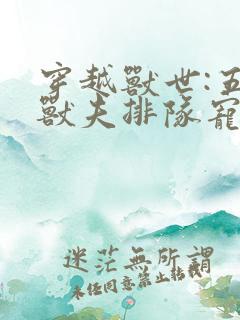 穿越獸世:五
獸夫排隊寵
迷茫無所謂
未任同意禁止轉載